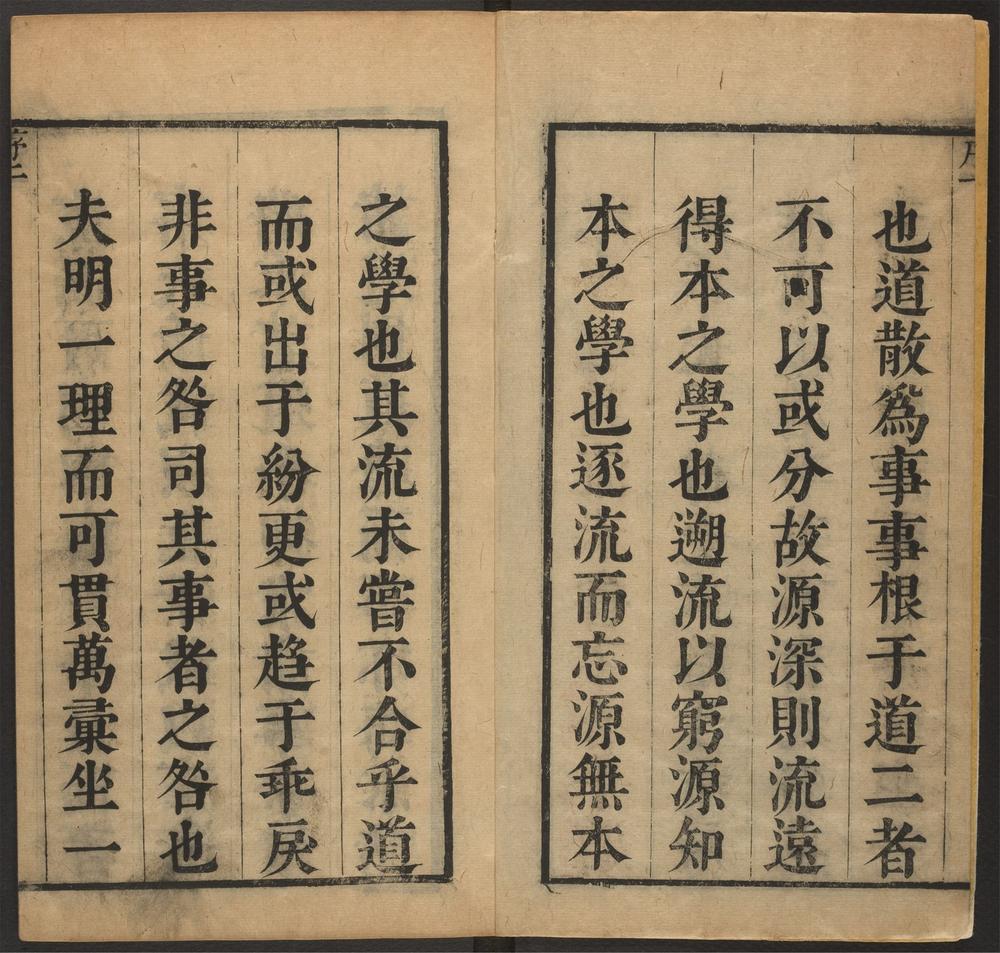 序一
也道散爲事事根于道二者
不可以或分故源深則流遠
得本之學也遡流以窮源知
本之學也逐流而忘源無本
之學也其流未嘗不合乎道
而或出于紛更或趋于乖戾
非事之咎司其事者之咎也
夫明一理而可貫萬彙坐一
序二